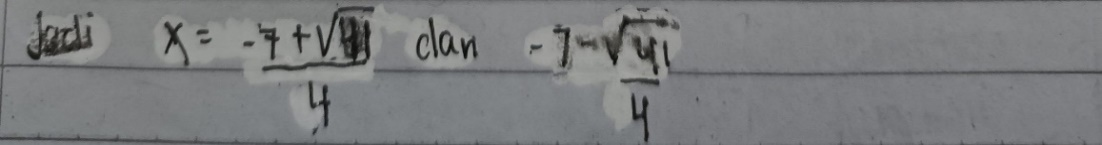 Jadi x = -7+√41/4 dan -7-√41/4